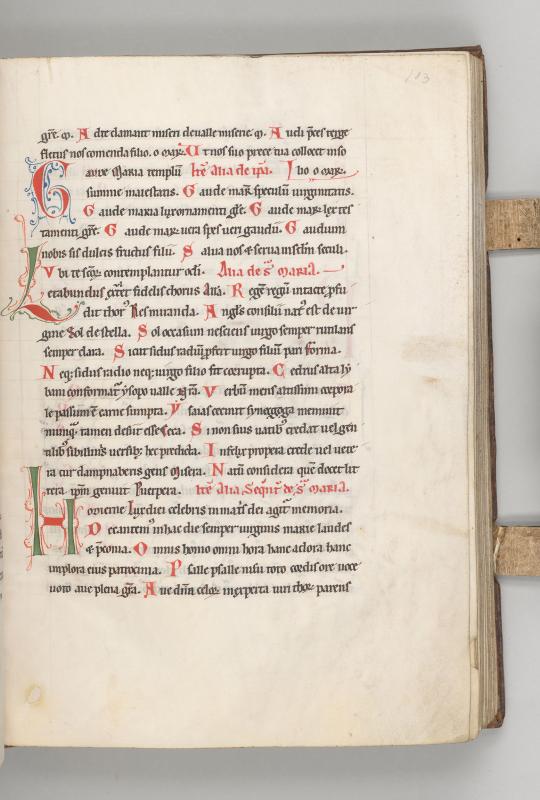 A d te clamant miseri de ualle miserie. A udi p̄ces rege
fletus nos comenda filio. o mar. U t nos suo prece tua collocet in so
G aude Maria templū Itē Alia de ip̄a. I ho. o mar.
summe maiestatis. G aude mar. speculū uirginitatis.
G aude maria lux ornamenti gl̄e. G aude mar. lex tes
tamenti gr̄e. G aude mar. uera spes ueri gaudii. G audium
nobis sis dulcis fructus filii. S alua nos & serua in secl̄m seculi.
V bi te seq. contemplantur celi. Alia de s̄ maria.
L etabundus ex̄tet fidelis chorus Alla. R egē regū intacte p̄fu
dit thor. Res miranda. A ngl̄s consilii nat᷒ est de uir
gine Sol de stella. S ol occasum nesciens uirgo semper rutilans
semper clara. S icut sidus radiū p̄fert uirgo filiū pari forma.
N eq; sidus radio neq; uirgo filio fit corrupta. C edrus alta ly
bani conformat᷑ ysopo ualle nr̄a. V erbū mens altissimi corpora
le passum ē carne sumpta. Y saias cecinit synagoga meminit
nunq. tamen desiit esse ceca. S i non suis uatib᷒ credat uel gen
tilib᷒ sibillinis uersib; hec predicta. I nfelix propera crede uel uete
ra cur dampnaberis gens misera. N atū considera quē docet lit
tera ip̄m genuit Puerpera. Itē Alia Sequit᷑ de s̄ maria.
H odierne lux diei celebris in matris dei agit᷑ memoria.
D ecantem᷒ in hac die semper uirginis marie laudes
& p̄conia. O mnis homo omni hora hanc adora hanc
implora eius patrocinia. P salle psalle nisu toto cordis ore uoce
uoto aue plena gr̄a. A ue dn̄a celor. inexperta uiri thor. parens